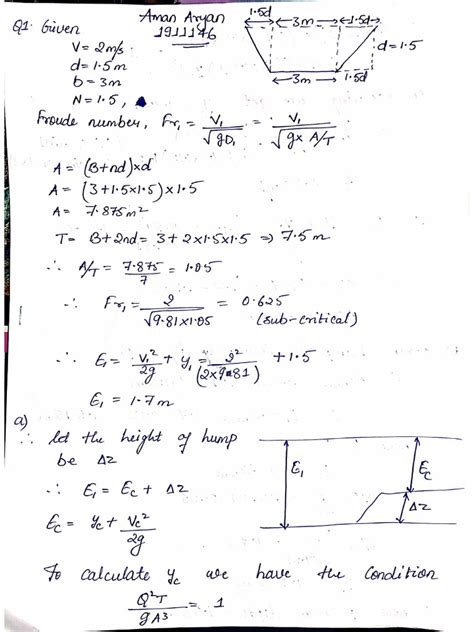 Aman Aryan
1911146
Q1. Given
V = 2m/s
d = 1.5m
b = 3m
N = 1.5,
1.5d
3m
1.5d
d = 1.5
3m
1.5d
Froude number, Fr₁ = V₁/√gD₁ = V₁/√g× A/T
A = (B+nd)×d
A = (3+1.5×1.5)×1.5
A = 7.875m²
T = B+2nd = 3+2×1.5×1.5 ⇒ 7.5 m
∴ A/T = 7.875/7 = 1.05
∴ Fr₁ = 2/√9.81×1.05 = 0.625
(sub-critical)
∴ E₁ = V₁²/2g + y₁ = 2²/(2×9.81) + 1.5
E₁ = 1.7m
a)
∴ let the height of hump
be Δz
∴ E₁ = Ec + Δz
Ec = yc + Vc²/2g
E₁
Ec
Δz
To calculate yc we have the condition
Q²T/gA³ = 1